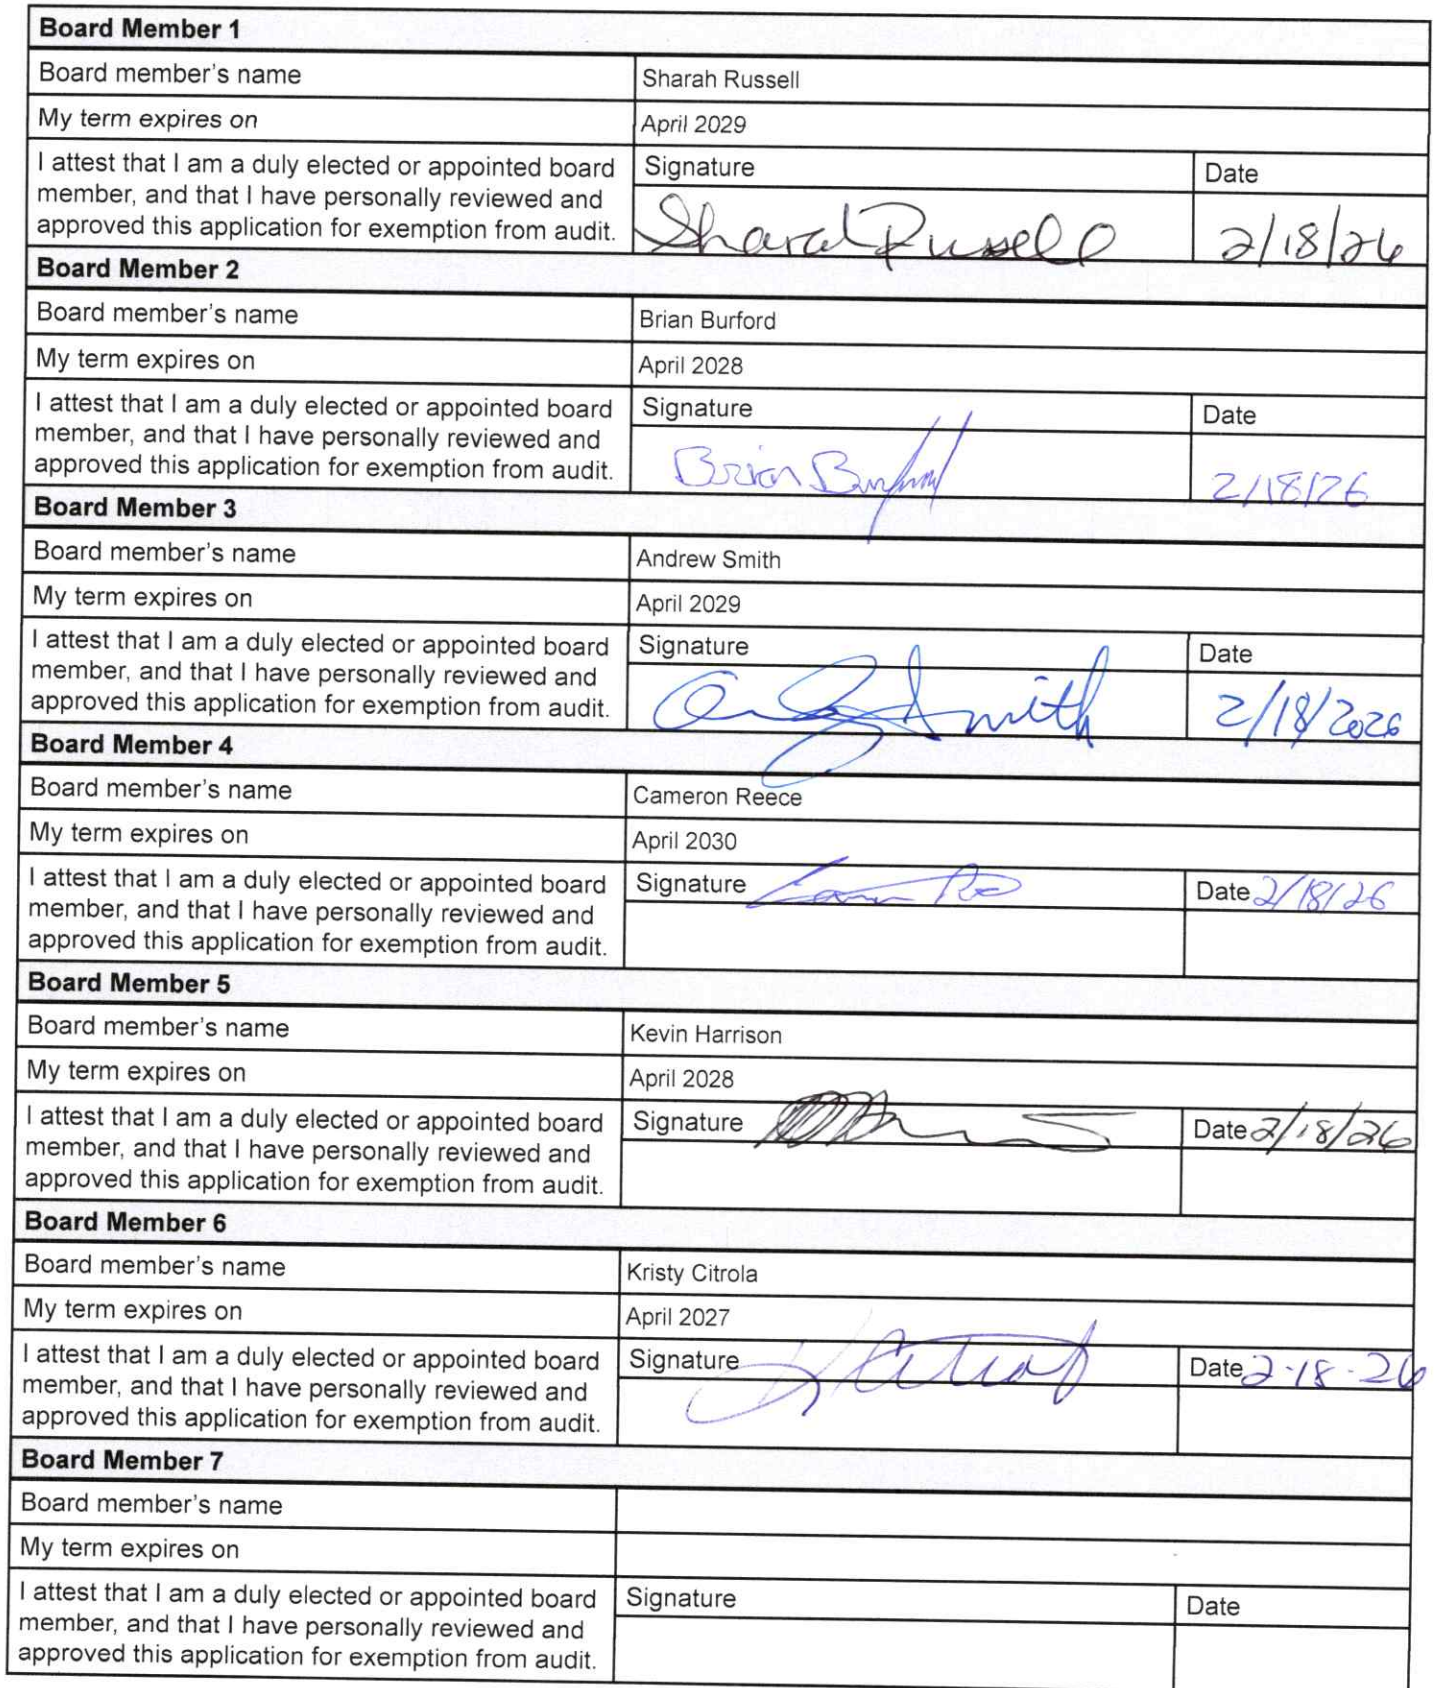 Board Member 1
Board member's name Sharah Russell
My term expires on April 2029
I attest that I am a duly elected or appointed board Signature Date
member, and that I have personally reviewed and
approved this application for exemption from audit. Sharah Russell 2/18/26
Board Member 2
Board member's name Brian Burford
My term expires on April 2028
I attest that I am a duly elected or appointed board Signature Date
member, and that I have personally reviewed and
approved this application for exemption from audit. Brian Burford 2/18/26
Board Member 3
Board member's name Andrew Smith
My term expires on April 2029
I attest that I am a duly elected or appointed board Signature Date
member, and that I have personally reviewed and
approved this application for exemption from audit. Smith 2/18/2026
Board Member 4
Board member's name Cameron Reece
My term expires on April 2030
I attest that I am a duly elected or appointed board Signature Date 2/18/26
member, and that I have personally reviewed and
approved this application for exemption from audit.
Board Member 5
Board member's name Kevin Harrison
My term expires on April 2028
I attest that I am a duly elected or appointed board Signature Date 2/18/26
member, and that I have personally reviewed and
approved this application for exemption from audit.
Board Member 6
Board member's name Kristy Citrola
My term expires on April 2027
I attest that I am a duly elected or appointed board Signature Date 2-18-26
member, and that I have personally reviewed and
approved this application for exemption from audit.
Board Member 7
Board member's name
My term expires on
I attest that I am a duly elected or appointed board Signature Date
member, and that I have personally reviewed and
approved this application for exemption from audit.